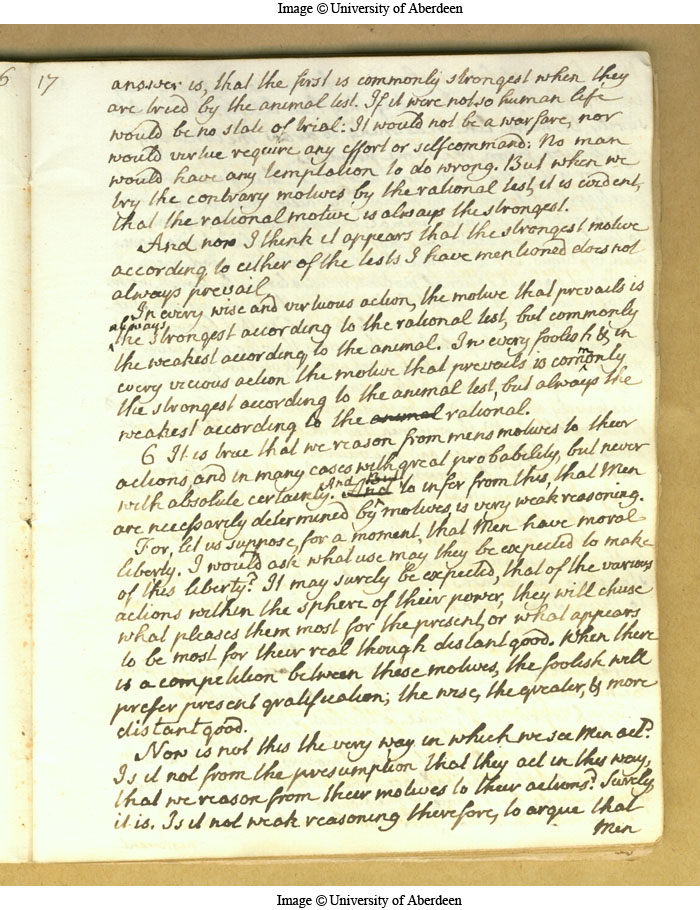 Image © University of Aberdeen
6 17
answer is, that the first is commonly strongest when they
are tried by the animal test. If it were not so human life
would be no state of trial: It would not be a warfare, nor
would virtue require any effort or self command: No man
would have any temptation to do wrong. But when we
try the contrary motives by the rational test, it is evident,
that the rational motive is always the strongest.
And now I think it appears that the strongest motive
according to either of the tests I have mentioned does not
always prevail
In every wise and virtuous action, the motive that prevails is
always
the strongest according to the rational test, but commonly
the weakest according to the animal. In every foolish & in
every vicious action the motive that prevails is commonly
the strongest according to the animal test, but always the
weakest according to the animal rational.
6 It is true that we reason from mens motives to their
actions, and in many cases with great probability, but never
And But
with absolute certainty. And to infer from this, that Men
are necessarily determined by motives, is very weak reasoning.
For, let us suppose, for a moment, that Men have moral
liberty. I would ask what use may they be expected to make
of this liberty? It may surely be expected, that of the various
actions within the sphere of their power, they will chuse
what pleases them most for the present, or what appears
to be most for their real though distant good. When there
is a competition between these motives, the foolish will
prefer present gratification; the wise, the greater, & more
distant good.
Now is not this the very way in which we see Men act?
Is it not from the presumption that they act in this way,
that we reason from their motives to their actions? Surely
it is. Is it not weak reasoning therefore, to argue that
Men
Image © University of Aberdeen